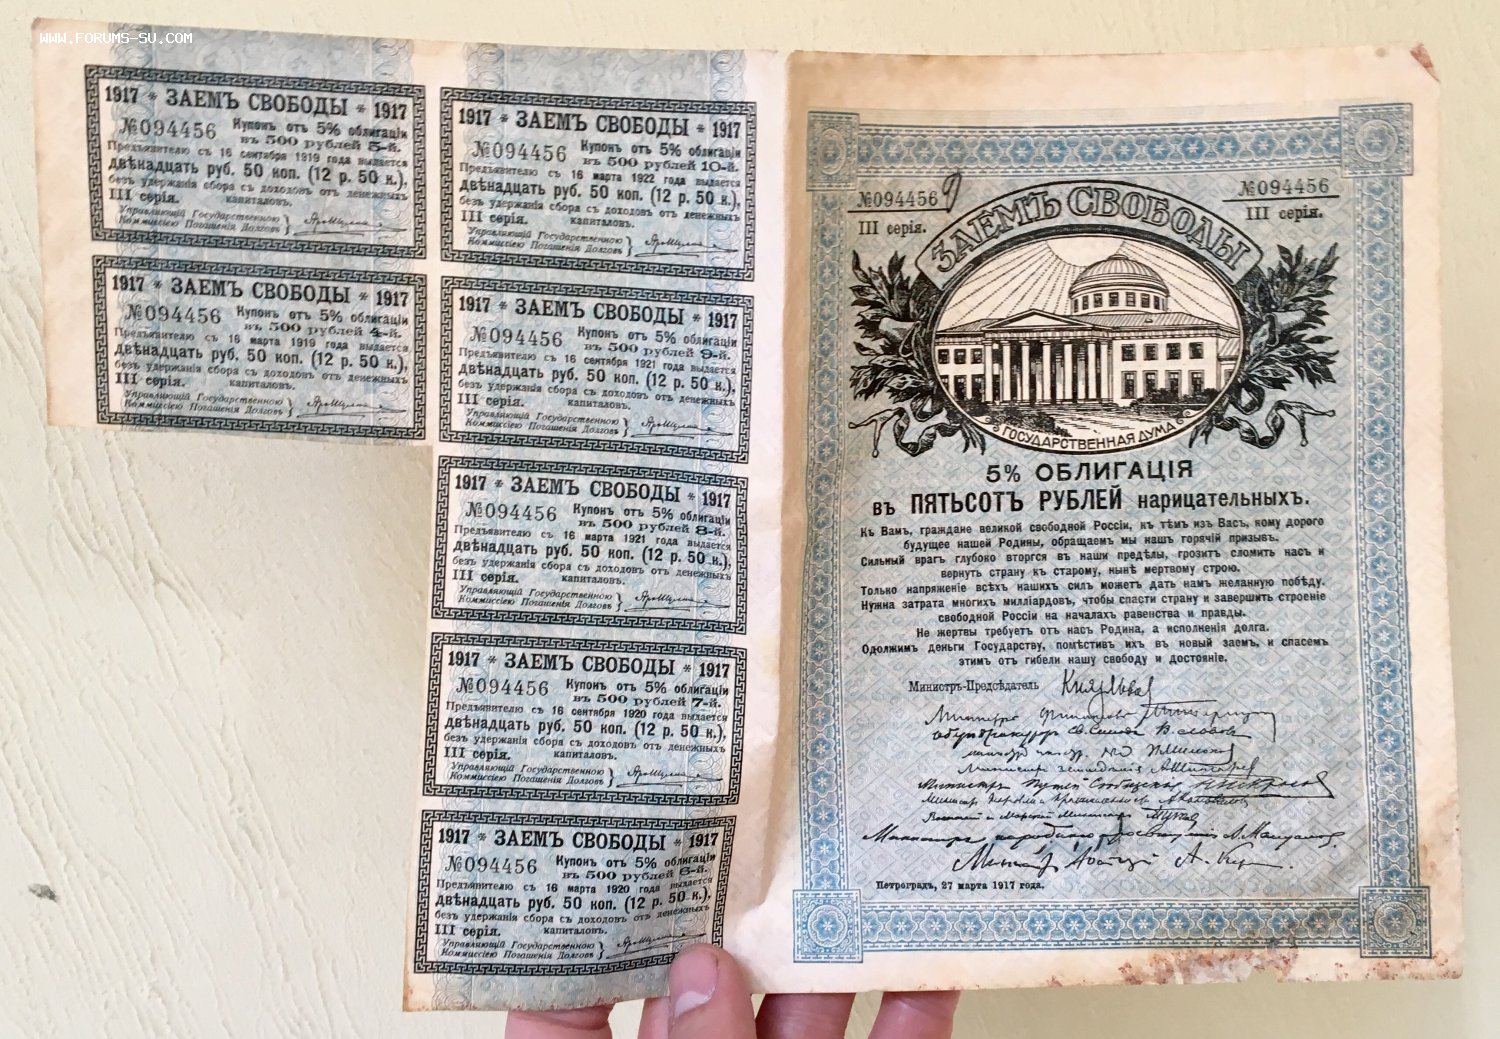 WWW.FORUMS-SU.COM
1917 * ЗАЕМЪ СВОБОДЫ * 1917
№094456 Купонъ отъ 5% облигаціи
въ 500 рублей 5-й.
Предъявителю съ 16 сентября 1919 года выдается
двѣнадцать руб. 50 коп. (12 р. 50 к.),
безъ удержанія сбора съ доходовъ отъ денежныхъ
III серія. капиталовъ.
Управляющій Государственною
Коммиссіею Погашенія Долговъ
1917 * ЗАЕМЪ СВОБОДЫ * 1917
№094456 Купонъ отъ 5% облигаціи
въ 500 рублей 4-й.
Предъявителю съ 16 марта 1919 года выдается
двѣнадцать руб. 50 коп. (12 р. 50 к.),
безъ удержанія сбора съ доходовъ отъ денежныхъ
III серія. капиталовъ.
Управляющій Государственною
Коммиссіею Погашенія Долговъ
1917 * ЗАЕМЪ СВОБОДЫ * 1917
№094456 Купонъ отъ 5% облигаціи
въ 500 рублей 10-й.
Предъявителю съ 16 марта 1922 года выдается
двѣнадцать руб. 50 коп. (12 р. 50 к.),
безъ удержанія сбора съ доходовъ отъ денежныхъ
III серія. капиталовъ.
Управляющій Государственною
Коммиссіею Погашенія Долговъ
1917 * ЗАЕМЪ СВОБОДЫ * 1917
№094456 Купонъ отъ 5% облигаціи
въ 500 рублей 9-й.
Предъявителю съ 16 сентября 1921 года выдается
двѣнадцать руб. 50 коп. (12 р. 50 к.),
безъ удержанія сбора съ доходовъ отъ денежныхъ
III серія. капиталовъ.
Управляющій Государственною
Коммиссіею Погашенія Долговъ
1917 * ЗАЕМЪ СВОБОДЫ * 1917
№094456 Купонъ отъ 5% облигаціи
въ 500 рублей 8-й.
Предъявителю съ 16 марта 1921 года выдается
двѣнадцать руб. 50 коп. (12 р. 50 к.),
безъ удержанія сбора съ доходовъ отъ денежныхъ
III серія. капиталовъ.
Управляющій Государственною
Коммиссіею Погашенія Долговъ
1917 * ЗАЕМЪ СВОБОДЫ * 1917
№094456 Купонъ отъ 5% облигаціи
въ 500 рублей 7-й.
Предъявителю съ 16 сентября 1920 года выдается
двѣнадцать руб. 50 коп. (12 р. 50 к.),
безъ удержанія сбора съ доходовъ отъ денежныхъ
III серія. капиталовъ.
Управляющій Государственною
Коммиссіею Погашенія Долговъ
1917 * ЗАЕМЪ СВОБОДЫ * 1917
№094456 Купонъ отъ 5% облигаціи
въ 500 рублей 6-й.
Предъявителю съ 16 марта 1920 года выдается
двѣнадцать руб. 50 коп. (12 р. 50 к.),
безъ удержанія сбора съ доходовъ отъ денежныхъ
III серія. капиталовъ.
Управляющій Государственною
Коммиссіею Погашенія Долговъ
№094456 №094456
III серія. III серія.
ЗАЕМЪ СВОБОДЫ
ГОСУДАРСТВЕННАЯ ДУМА
5% ОБЛИГАЦІЯ
въ ПЯТЬСОТЪ РУБЛЕЙ нарицательныхъ.
Къ Вамъ, граждане великой свободной Россіи, къ тѣмъ изъ Васъ, кому дорого
будущее нашей Родины, обращаемъ мы нашъ горячій призывъ.
Сильный врагъ глубоко вторгся въ наши предѣлы, грозитъ сломить насъ и
вернуть страну къ старому, нынѣ мертвому строю.
Только напряженіе всѣхъ нашихъ силъ можетъ дать намъ желанную побѣду.
Нужна затрата многихъ милліардовъ, чтобы спасти страну и завершить строеніе
свободной Россіи на началахъ равенства и правды.
Не жертвы требуетъ отъ насъ Родина, а исполненія долга.
Одолжимъ деньги Государству, помѣстивъ ихъ въ новый заемъ, и спасемъ
этимъ отъ гибели нашу свободу и достояніе.
Министръ-Предсѣдатель Князь Львов
Министръ Финансовъ
В. Львовъ
Министръ Путей Сообщенія
Министръ народнаго просвѣщенія
Петроградъ, 27 марта 1917 года.